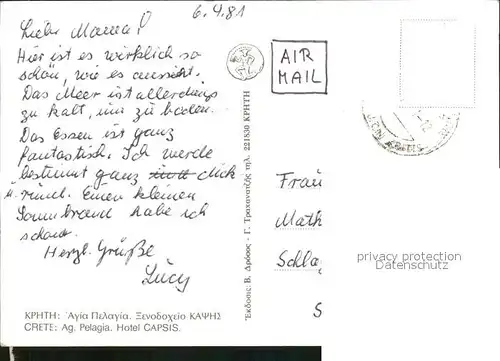 6.4.81
Liebe Mama!
Hier ist es wirklich so
schön, wie es aussieht.
Das Meer ist allerdings
zu kalt, um zu baden.
Das Essen ist ganz
fantastisch. Ich werde
bestimmt ganz dick
u. rund. Einen kleinen
Sonnenbrand habe ich
schon.
Herzl. Grüße
Lucy
ΚΡΗΤΗ: Ἁγία Πελαγία. Ξενοδοχεῖο ΚΑΨΗΣ
CRETE: Ag. Pelagia. Hotel CAPSIS.
Ἐκδοσις: Β. Δρόσος - Γ. Τραχανατζῆς τηλ. 221830 ΚΡΗΤΗ
AIR
MAIL
Frau
Math
Schla
S
privacy protection
Datenschutz